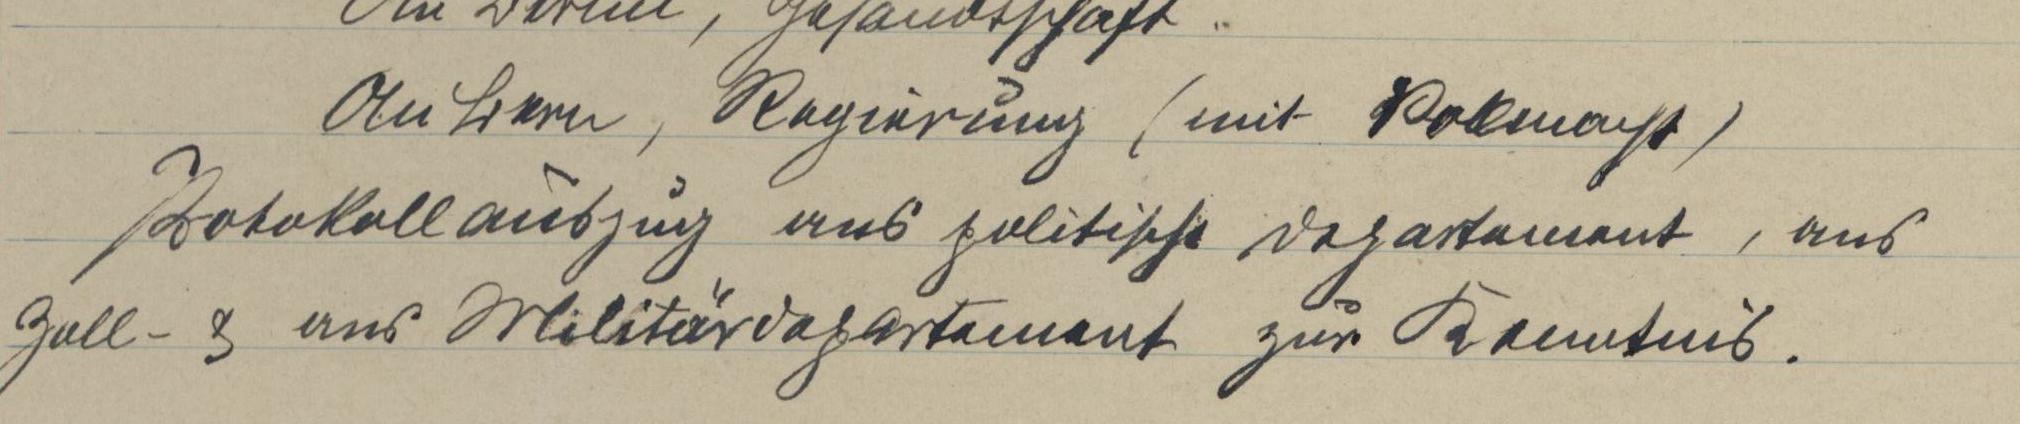 An Berlin, Gesandtschaft.
An Bern, Regierung (mit Vollmacht)
Protokollauszug ans politische Departement, ans
Zoll- & ans Militärdepartement zur Kenntnis.